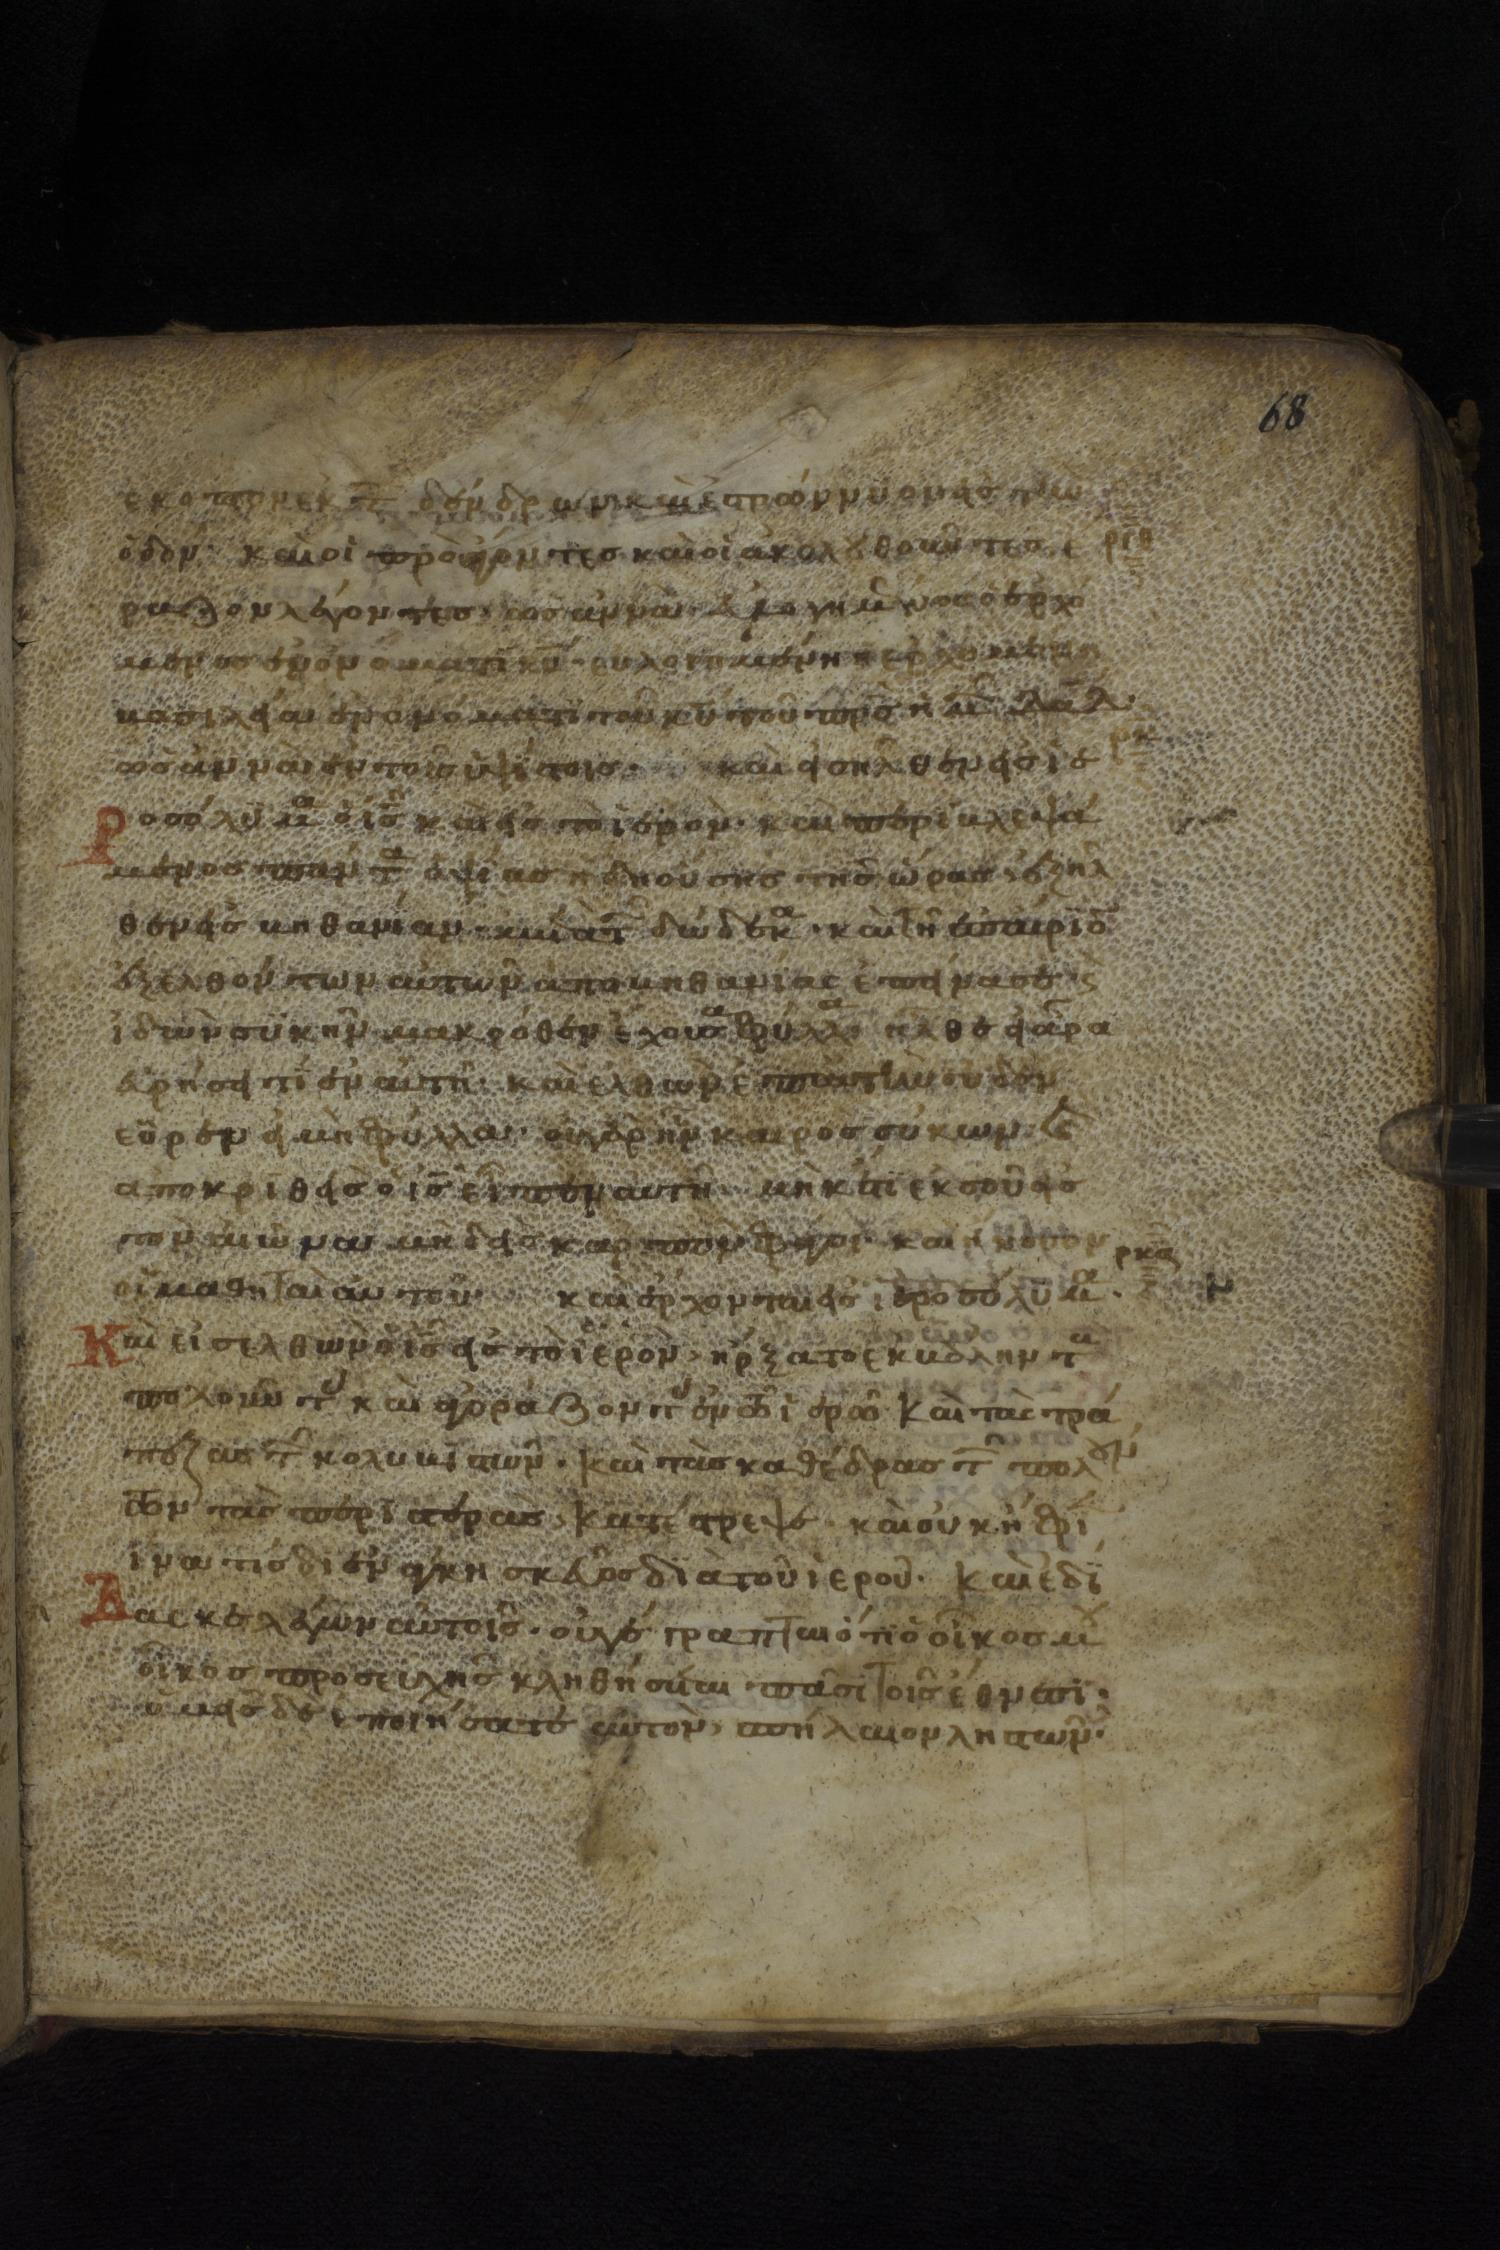 68
εκοπτον εκ τ̅ δένδρων και ἐστρώννυον εἰς τ̀ην
ὁδόν· και οἱ προάγοντες και οἱ ἀκολουθοῦντες ἔ ριθ
ραζον λέγοντες· ὡσαννὰ· εὐλογημένος ὁ ἐρχό
μενος ἐν ὀνόματι κ̅υ· ευλογημένη ἡ ἐρχομένη
βασιλεία ἐν ὀνόματι του κ̅υ τοῦ πρ̅ς ἡμ̅ δα̅δ·
ὡσὰννὰ ἐν τοῖς ὑψίστοις· και εἰσῆλθεν εἰς ἱε ρκ
Ροσόλυμα ὁ ι̅ς και εἰς τὸ ἱερὸν· και περιβλεψά
μενος παντα ὀψίας ἤδη οὔσης της ὥρας· ἐξῆλ
θεν εἰς βηθανίαν· μετὰ τ̅ δώδεκα· και τῆ ἐπαύριο̅
ἐξελθόντων αὐτῶν ἀπο βηθανίας ἐπείνασε· ϛ
ἰδὼν συκῆν μακρόθεν ἔχουσα φύλλα ἦλθεν εἰ ἄρα
εὑρήσει τί ἐν αὐτῆ· και ελθὼν ἐπ' αὐτὴν ουδὲν
εὗρεν εἰ μὴ φύλλα· οὐ γὰρ ἦν καιρος σύκων· ϛ
ἀποκριθεὶς ὁ ι̅ς εἶπεν αυτῆ· μὴκέτι ἐκ σοῦ εἰς
τὸν αἰῶνα μηδεὶς καρπὸν φάγοι· και ἤκουον
οἱ μαθηται αυτοῦ και ἔρχονται εἰς ἱεροσόλυμα· ρκα
Και εἰσελθὼν ὁ ι̅ς εἰς τὸ ἱερὸν· ἤρξατο ἐκβάλλειν τ
πολουντ και ἀγοράζοντ ἐν τῶ ἱερῶ· και τὰς τρα
πέζας τ̅ κολυβιστῶν· και τὰς καθέδρας τ̅ πολουν
των τὰς περιστερὰς· κατέστρεψε· και οὐκ ἤφι
ἵνα τίς διενέγκη σκεῦος διὰ τοῦ ἱεροῦ· και ἐδί
Δασκε λέγων αὐτοῖς· οὐ γέγραπται ὅτι ὁ οἶκος μου
οἶκος προσευχῆς κληθήσεται πᾶσι τοῖς ἔθνεσι·
ὑμεῖς δὲ ἐποιήσατε αὐτὸν· σπήλαιον ληστῶν·